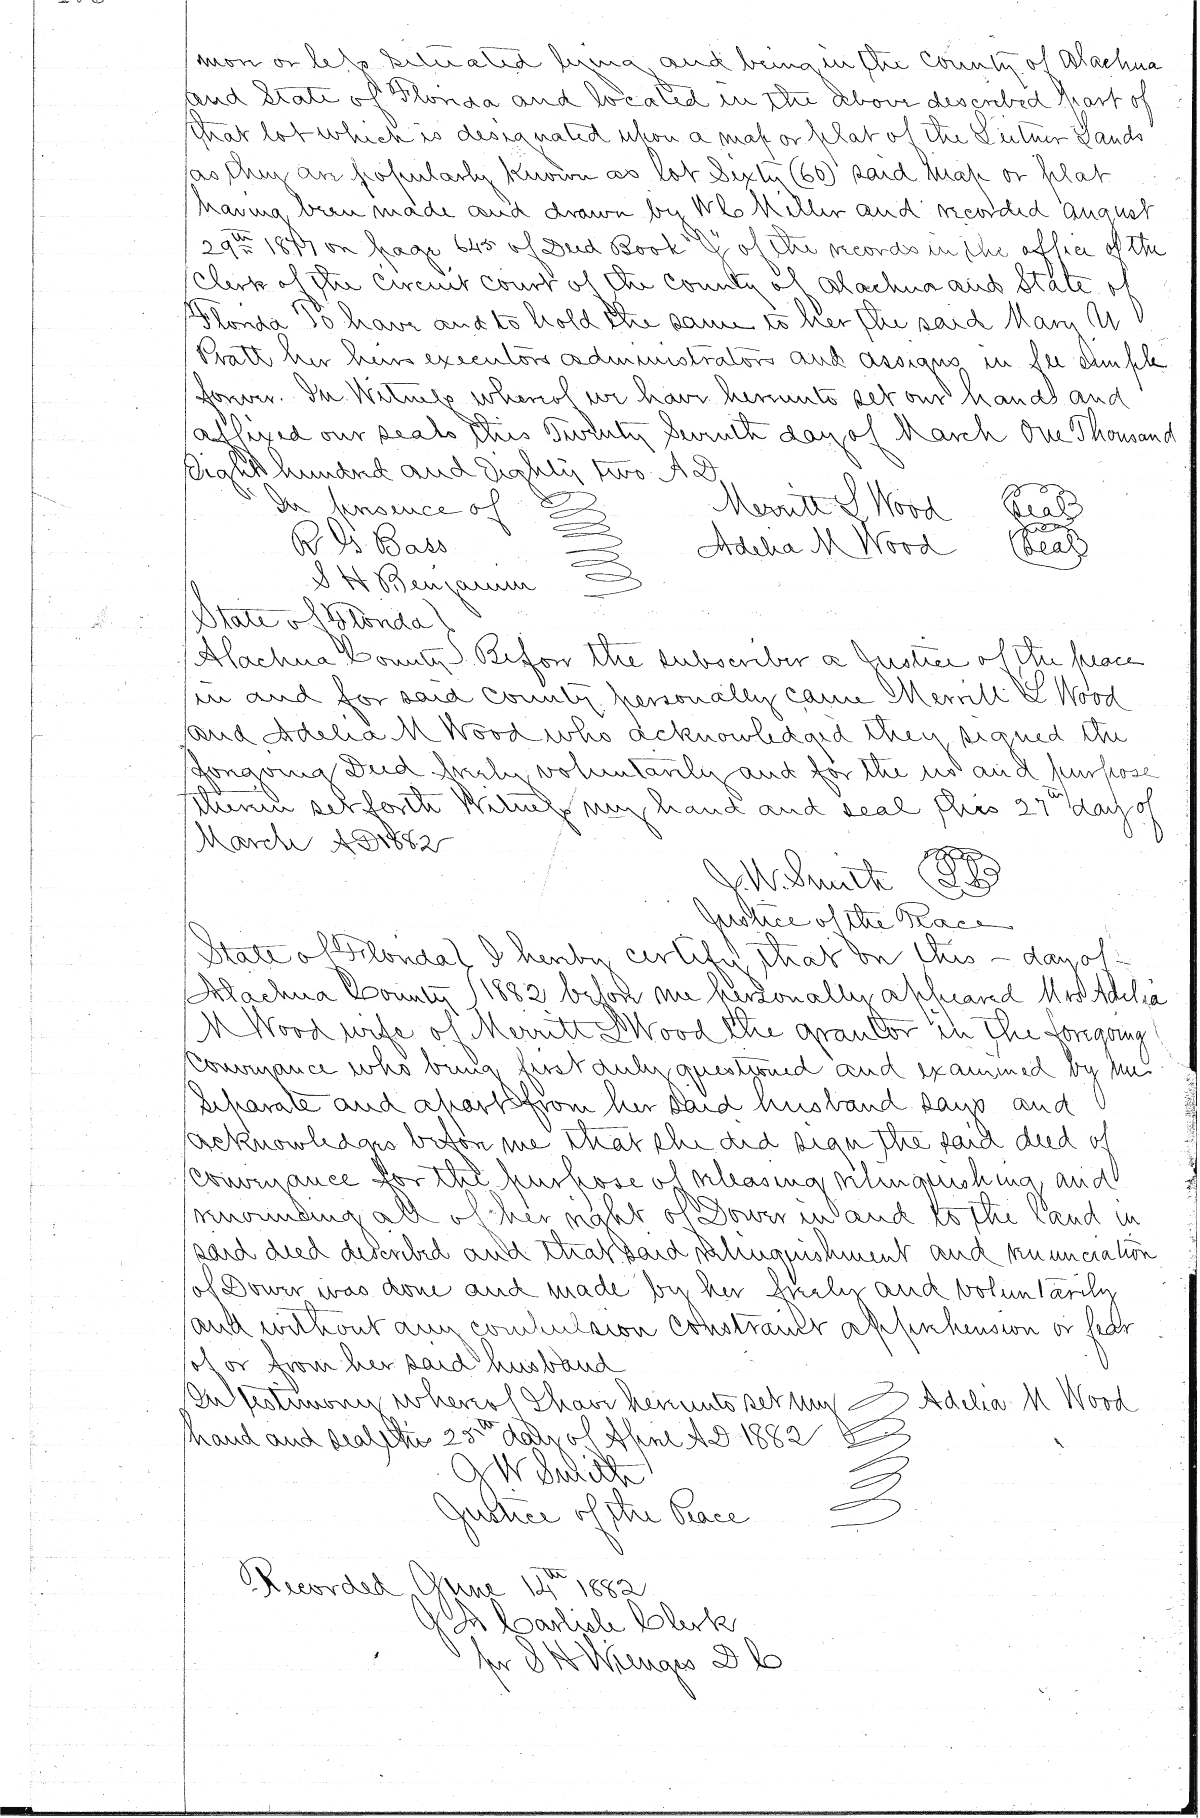 more or less situated lying and being in the County of Alachua
and State of Florida and located in the above described part of
that lot which is designated upon a map or plat of the Lands
as they are popularly known as lot Sixty (60) said map or plat
having been made and drawn by Miller and recorded august
29th 1877 on page 645 of Deed Book of the records in the office of the
Clerk of the Circuit court of the county of Alachua and State of
Florida To have and to hold the same to her the said Mary
Pratt her heirs executors administrators and assigns in fee simple
forever. In Witness whereof we have hereunto set our hands and
affixed our seals this Twenty Seventh day of March One Thousand
Eight hundred and Eighty two A D
In presence of Merritt L Wood Seal
R G Bass Adelia M Wood Seal
S H Benjamin
State of Florida
Alachua County Before the subscriber a Justice of the peace
in and for said County personally came Merritt L Wood
and Adelia M Wood who acknowledged they signed the
foregoing Deed freely voluntarily and for the use and purpose
therein set forth Witness my hand and seal this 27th day of
March A D 1882
J. W. Smith LS
Justice of the Peace
State of Florida I hereby certify that on this – day of –
Alachua County 1882 before me personally appeared Mrs Adelia
M Wood wife of Merritt L Wood the grantor in the foregoing
Conveyance who being first duly questioned and examined by me
Separate and apart from her said husband says and
acknowledges before me that she did sign the said deed of
conveyance for the purpose of releasing relinquishing and
renouncing all of her right of Dower in and to the land in
said deed described and that said relinquishment and renunciation
of Dower was done and made by her freely and voluntarily
and without any compulsion constraint apprehension or fear
of or from her said husband
In testimony whereof I have hereunto set my Adelia M Wood
hand and seal this 25th day of April A D 1882
J W Smith
Justice of the Peace
Recorded June 14th 1882
J A Carlisle Clerk
per S H Wienges D C